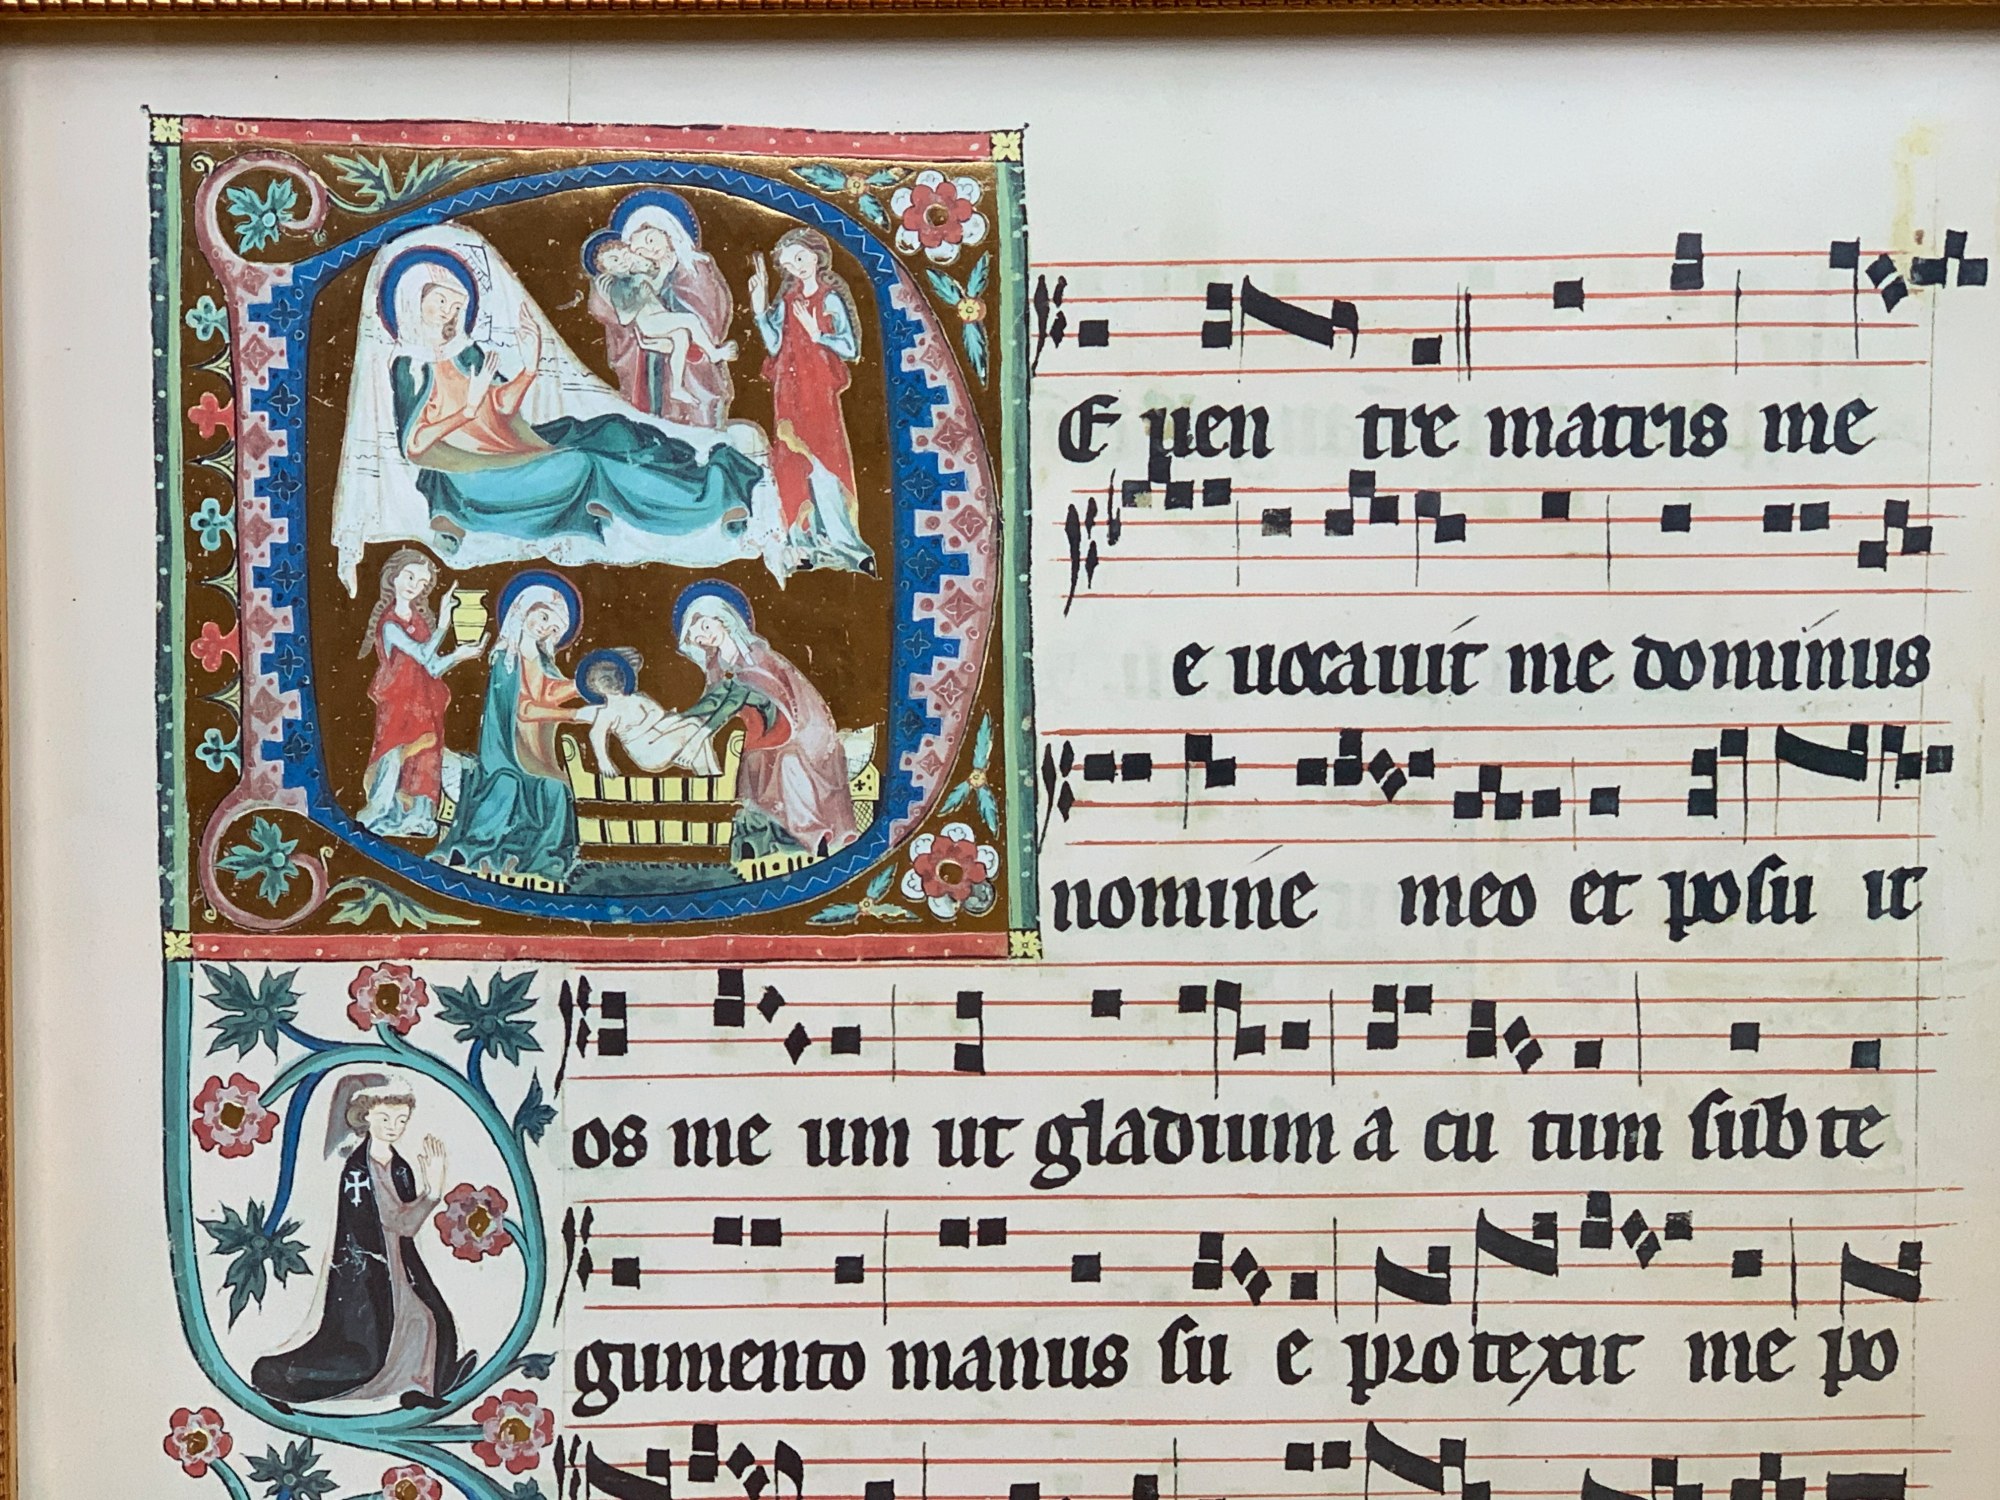 E uen tre matris me
e uocauit me dominus
nomine meo et posu it
os me um ut gladium a cu tum sub te
gumento manus su e protexit me po